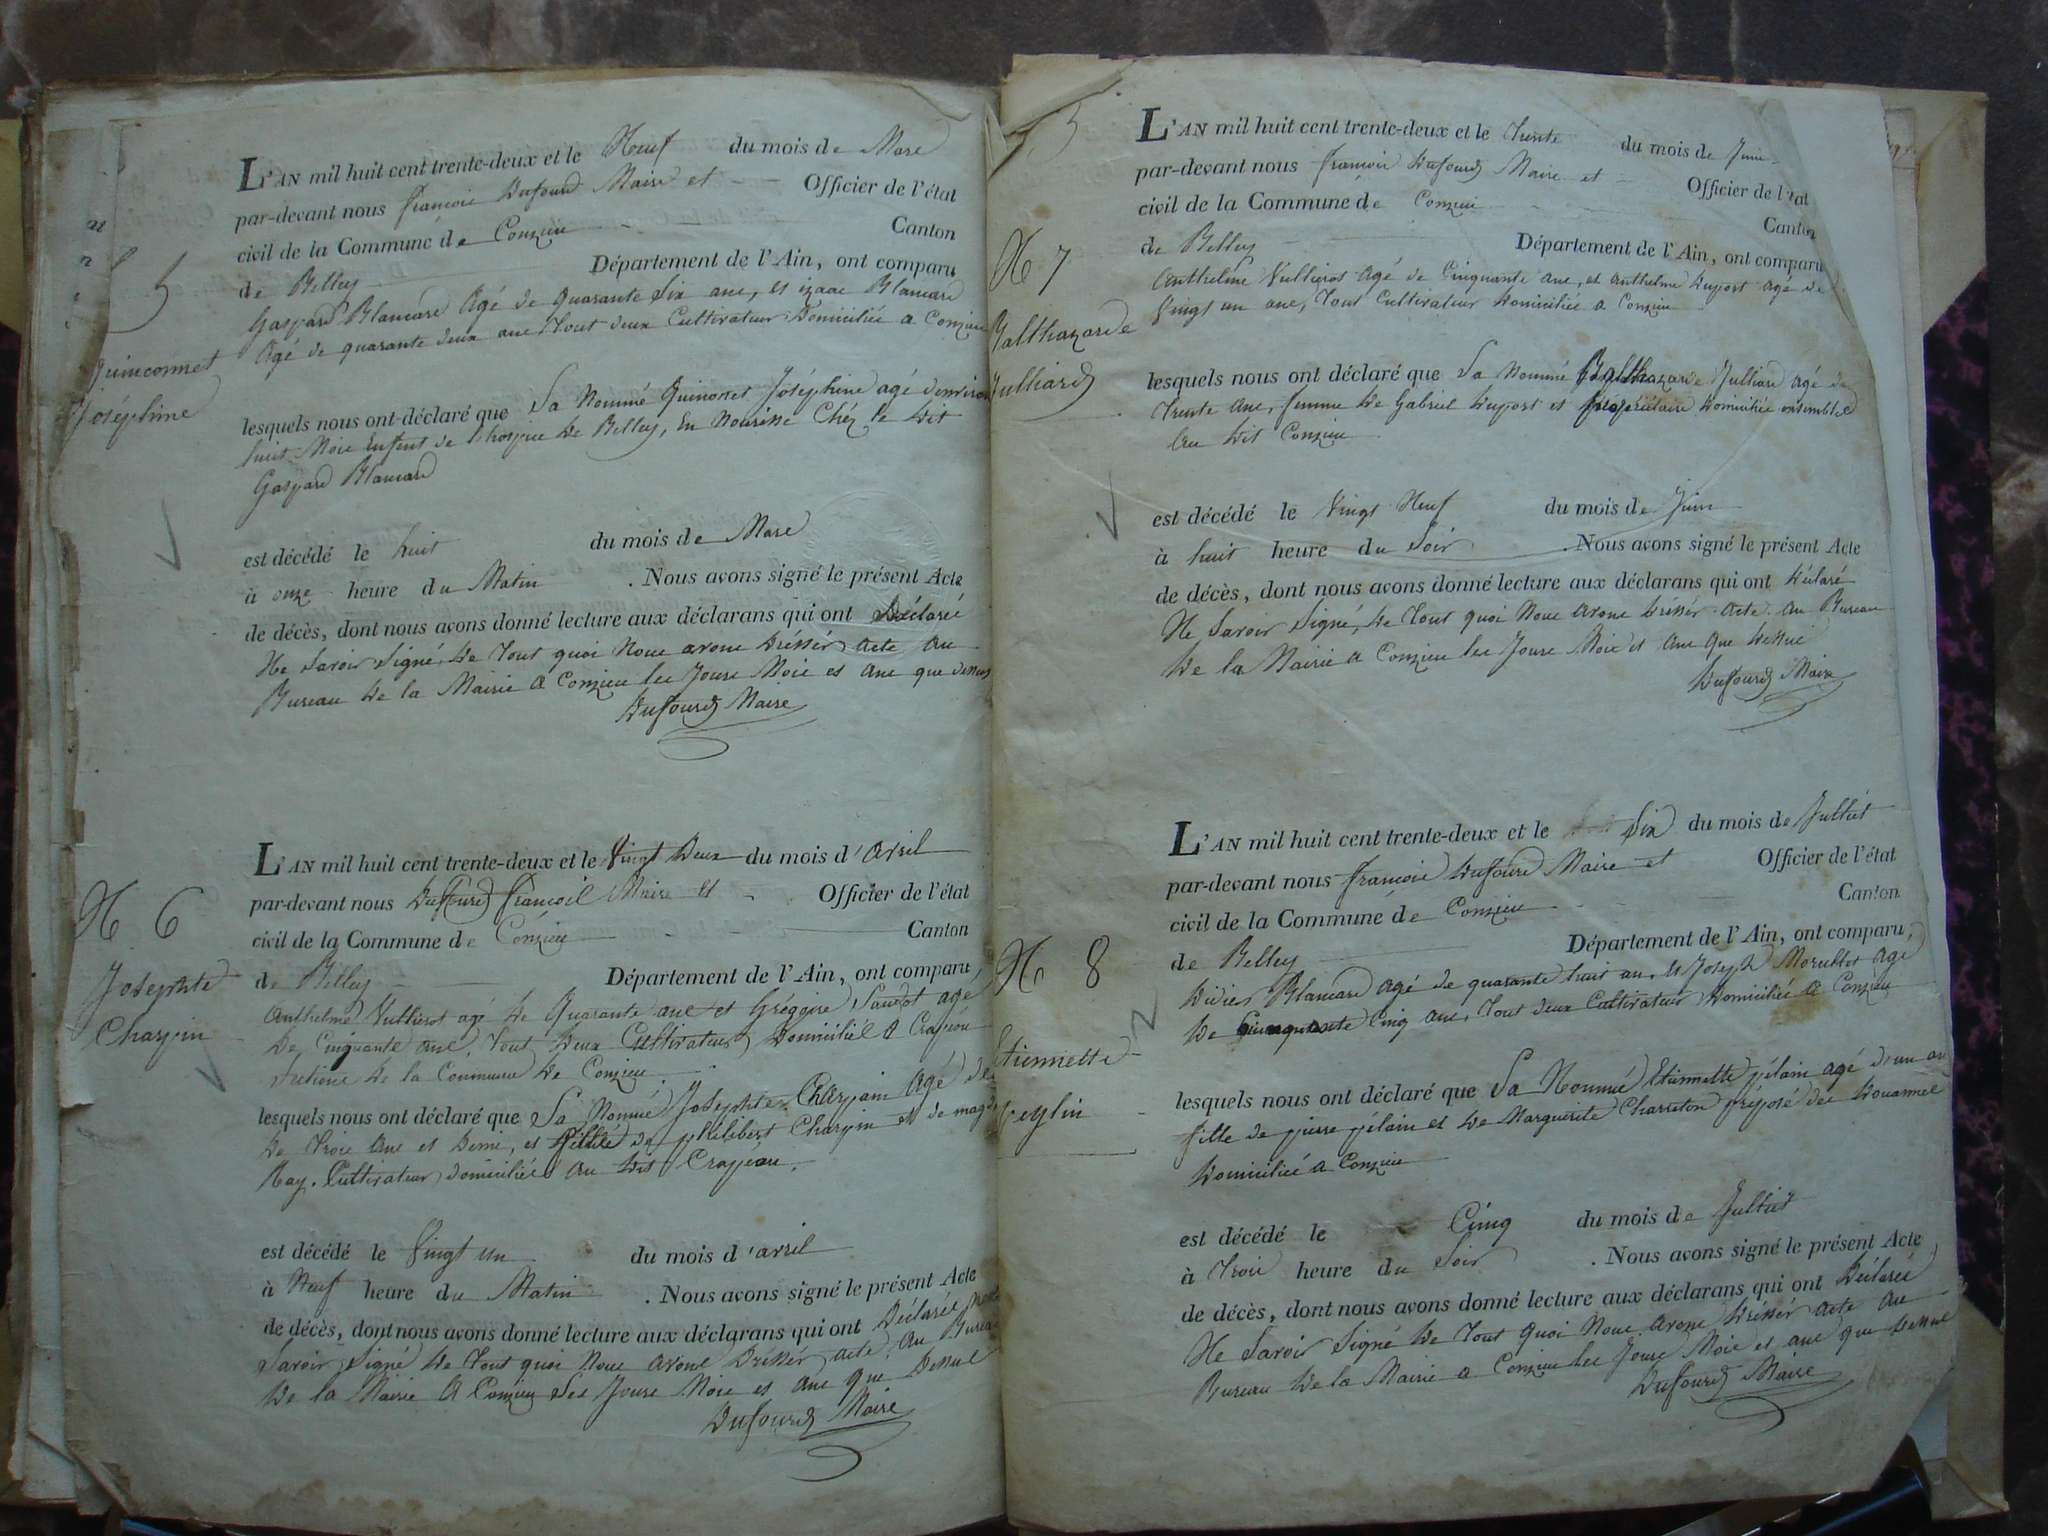 5
Quinconnet
Joséphine
L'AN mil huit cent trente-deux et le Neuf du mois de Mars
par-devant nous francois Dufourd Maire et Officier de l'état
civil de la Commune de Conzieu Canton
de Belley Département de l'Ain, ont comparu
Gaspard Blancard Agé de quarante Six ans, et izaac Blancard
Agé de quarante deux ans Tout deux Cultivateur Domiciliée a Conzieu
lesquels nous ont déclaré que La Nommé Quinonet Joséphine agé denviron
huit Mois Enfent de Lhospice De Belley, En Nourisse Chéz le dit
Gaspard Blancard
est décédé le huit du mois de Mars
à onze heure du Matin . Nous avons signé le présent Acte
de décès, dont nous avons donné lecture aux déclarans qui ont Déclaré
Ne Savoir Signé, De Tout quoi Nous avons Dréssér acte au
Bureau De la Mairie A Conzieu les Jours Mois et Ans que dessus
Dufourd Maire
N 6
Josephte
Charpin
L'AN mil huit cent trente-deux et le Vingt Deux du mois d'avril
par-devant nous Dufourd francois Maire et Officier de l'état
civil de la Commune de Conzieu Canton
de Belley Département de l'Ain, ont comparu
Anthelme Vullierot agé De Quarante ans et Grégoire Saudot agé
De Cinquante ans, Tout Deux Cultivateur Domicilié A Crapéou
Sections De la Commune De Conzieu
lesquels nous ont déclaré que La Nommé Josephte Charpin Agé de
De Trois Ans et Demi, et fillie de philibert Charpin et de
Ray. Cultivateur domiciliée au dit Crapéou.
est décédé le Vingt un du mois d'avril
à Neuf heure du Matin . Nous avons signé le présent Acte
de décès, dont nous avons donné lecture aux déclarans qui ont Déclarée
Savoir Signé De Tout quoi Nous avons Dréssér acte au Bureau
De la Mairie A Conzieu Les Jours Mois et Ans que Dessus
Dufourd Maire
N 7
Balthazarde
Julliard
L'AN mil huit cent trente-deux et le Trente du mois de Juin
par-devant nous francois Dufourd Maire et Officier de l'état
civil de la Commune de Conzieu Canton
de Belley Département de l'Ain, ont comparu
Anthelme Vullierot Agé de Cinquante Ans, et Anthelme Duport Agé de
Vingt un ans, Tout Cultivateur Domiciliée a Conzieu
lesquels nous ont déclaré que La Nommé Balthazarde Julliard Agé de
Trente Ans, femme De Gabriel Duport et propriétaire Domiciliée ensemble
Au dit Conzieu
est décédé le Vingt Neuf du mois de Juin
à huit heure du Soir . Nous avons signé le présent Acte
de décès, dont nous avons donné lecture aux déclarans qui ont Déclaré
Ne Savoir Signé, De Tout quoi Nous avons Dréssér Acte au Bureau
De la Mairie A Conzieu les Jours Mois et Ans que Dessus
Dufourd Maire
N 8
Etiennette
peylin
L'AN mil huit cent trente-deux et le Six du mois de Julliet
par-devant nous francois Dufourd Maire et Officier de l'état
civil de la Commune de Conzieu Canton
de Belley Département de l'Ain, ont comparu
Didier Blancard agé de quarante huit an, et Joseph Agé
De Cinquante Cinq ans, Tout deux Cultivateur Domiciliée A Conzieu
lesquels nous ont déclaré que La Nommé Etiennette pélain agé d'un an
fille de pierre pélain et De Marguerite Charreton préposé des Douannes
Domiciliée A Conzieu
est décédé le Cinq du mois de Julliet
à Trois heure du Soir . Nous avons signé le présent Acte
de décès, dont nous avons donné lecture aux déclarans qui ont Déclaré
Ne Savoir Signé De Tout quoi Nous avons Dréssér Acte au
Bureau De la Mairie a Conzieu les Jours Mois et ans que dessus
Dufourd Maire